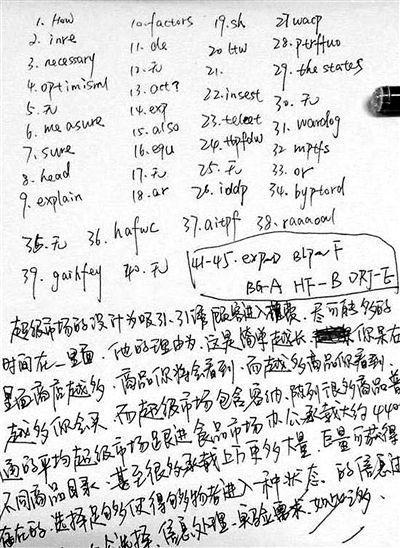 1. How
2. inre
3. necessary
4. optimisml
5. 无
6. measure
7. sure
8. head
9. explain
10. factors
11. de
12. 无
13. act?
14. exp
15. also
16. equ
17. 无
18. ar
19. sh
20. ltw
21.
22. insest
23. teleet
24. thpfdw
25. 无
26. iddp
27 wacp
28. ptrftuo
29. the states
30. 无
31. wardog
32 mptfs
33. or
34. byptord
35. 无 36. hafwc 37. aitpf 38. raaaoal
39. gaihfey 40. 无
41-45. expnD BlpnF
BG-A HF-B DRJ-E
超级市场的设计为吸引 引诱 顾客进入 尽可能多的
时间在一里面. 他的理由为.这是简单越长 你呆在
里面商店越多. 商品你将会看到. 而越多商品你看到.
越多你会买. 而超级市场包含容纳.陈列很多商品普
通的平均超级市场跟进食品市场 办公承载大约 440
不同商品目录. 甚至很多承载上万更多大量.巨量可获得
存在的选择足够使得购物者进入一种状态. 的信息过
选择. 信息处理 要求. 如此之多.